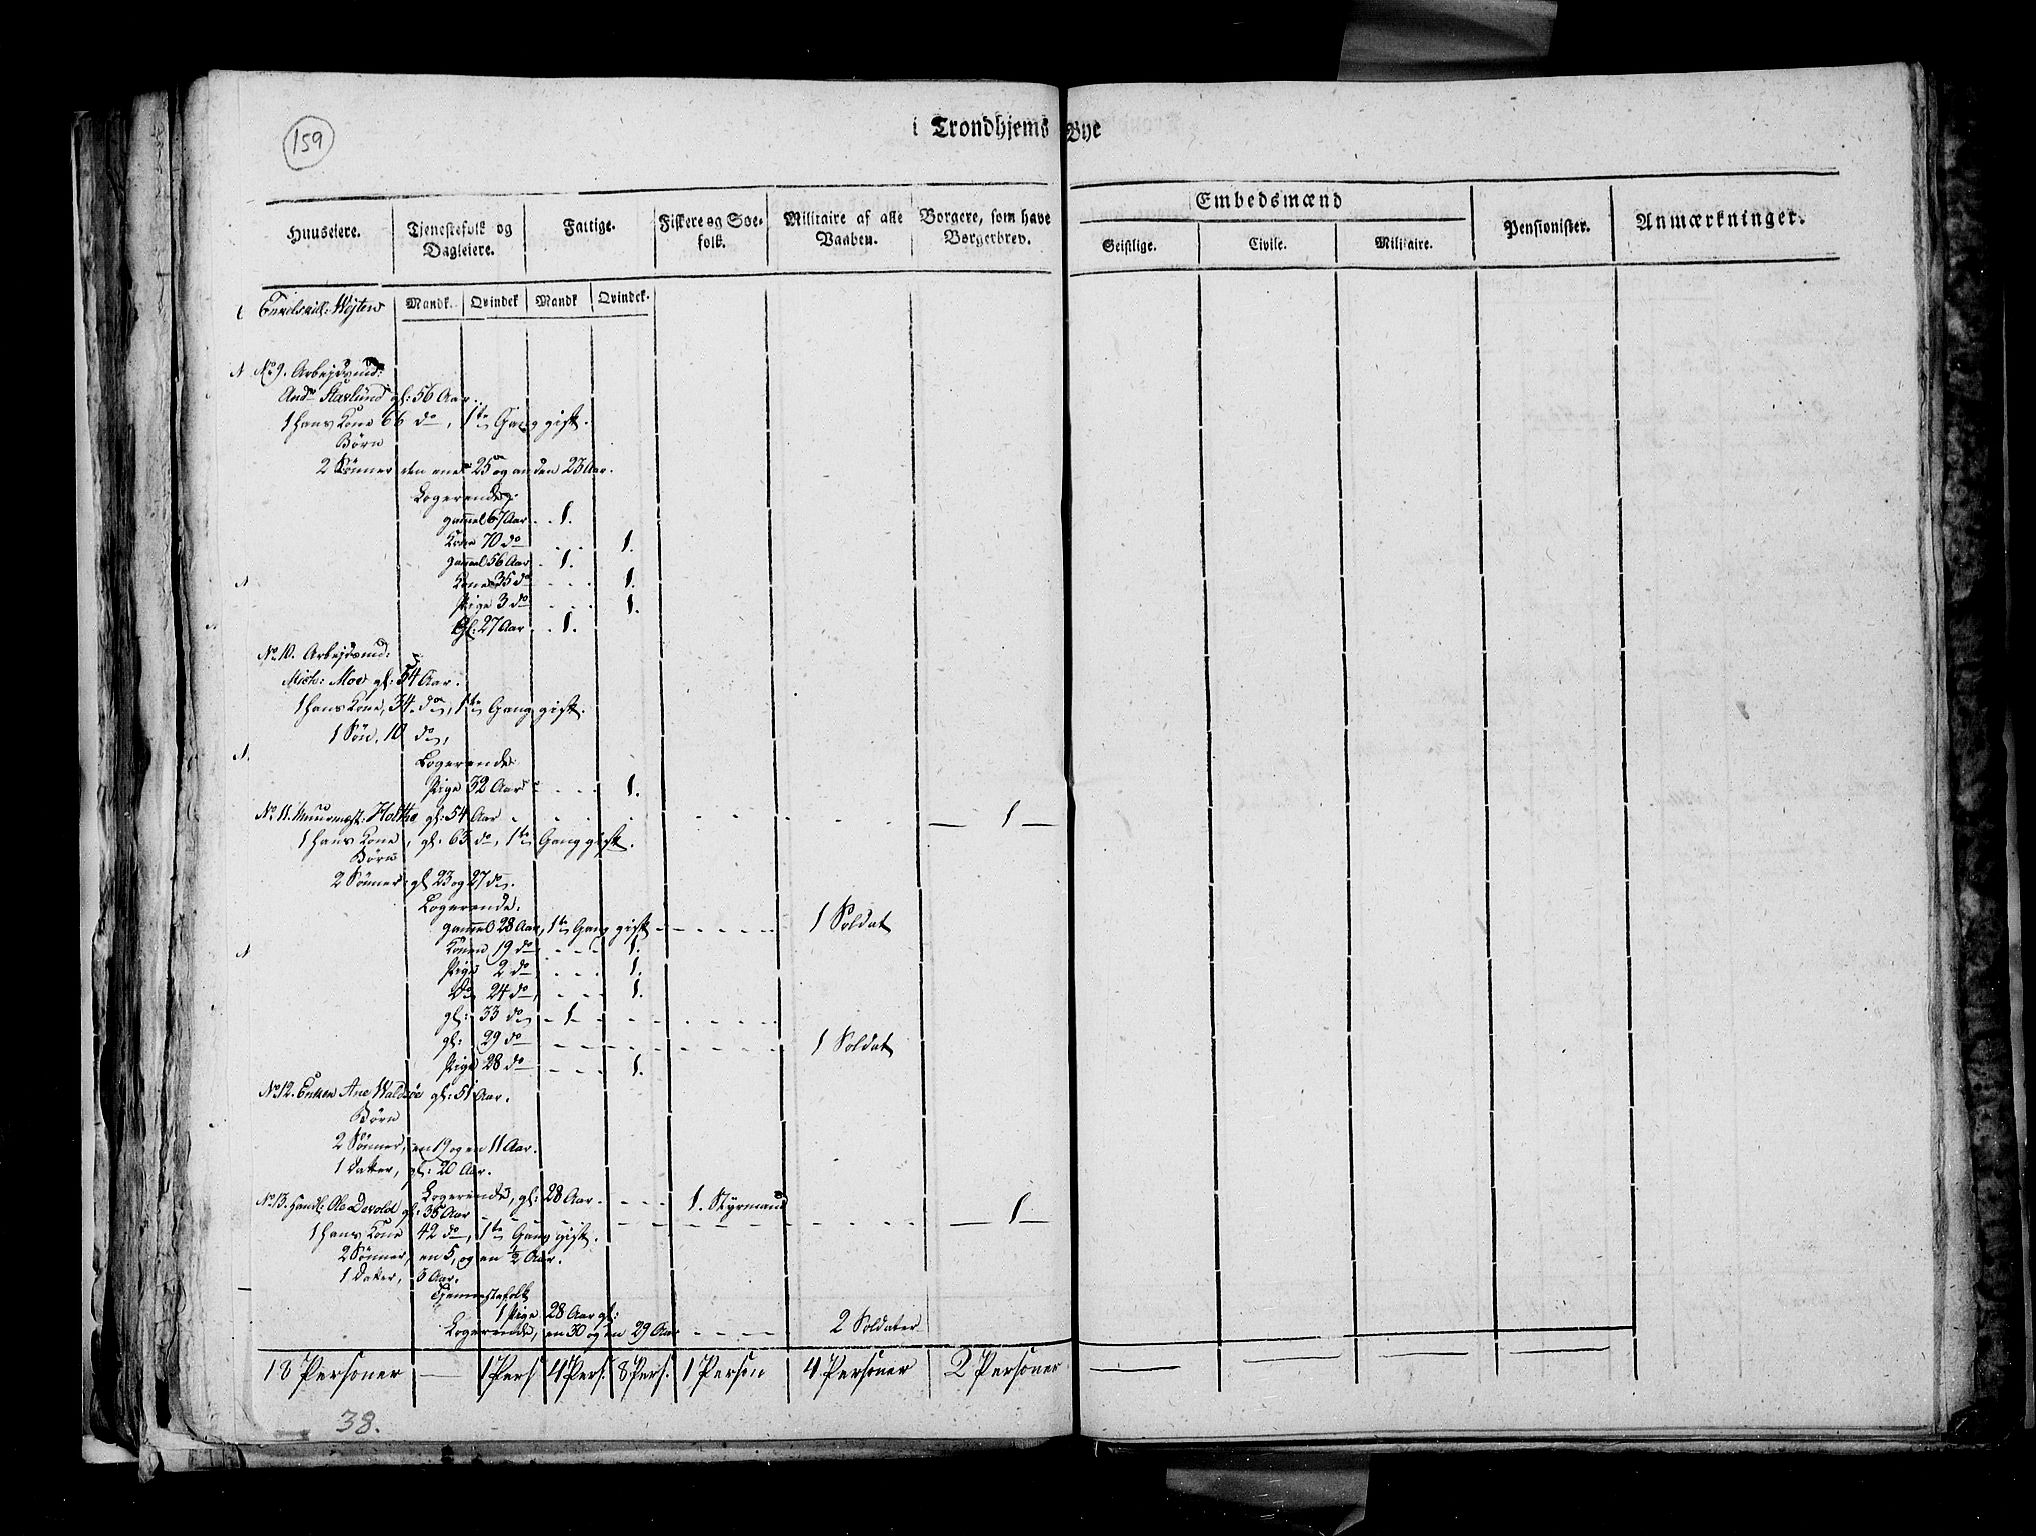 159
i Trondhjems Bye
Huuseiere. Tjenestefolk og Dagleiere. Fattige. Fiskere og Soefolk. Militaire af alle Vaaben. Borgere, som have Borgerbrev. Embedsmænd Pensionister. Anmærkninger.
Geistlige. Civile. Militaire.
Mandk. Qvindek Mandk Qvindek.
No 9. Arbejdsmd:
Andrs Stavlund gl: 56 Aar.
1 hans Kone 66 do, 1te Gang gift.
Børn
2 Sönner den ene 25 og anden 23 Aar.
Logerende:
gammel 67 Aar - - 1.
Kone 70 do - - - 1.
gammel 56 Aar - 1.
Kone 35 do - - - 1.
Pige 3 do - - - 1.
Gl: 27 Aar - - 1.
No 10. Arbejdsmd:
Mich: Moe gl: 54 Aar.
1 hans Kone, 34 do, 1te Gang gift.
1 Søn, 10 do,
Logerende
Pige 32 Aar - - - 1.
No 11. Muurmest: Holthe gl: 54 Aar - - - 1
1 hans Kone, gl: 63 do, 1te Gang gift.
Børn
2 Sönner gl 23 og 27 do.
Logerende.
gammel 28 Aar, 1te Gang gift - - - - - 1 Soldat
Konen 19 do - - - 1.
Pige 2 do, - - - 1.
Do 24 do, - - - 1.
gl: 33 do - 1 - - - - - -
gl: 29 do - - - - - - 1 Soldat
Pige 28 do - - - 1.
No 12. Enken Ane Waldsøe gl: 51 Aar.
Børn
2 Sönner, en 19 og en 11 Aar.
1 Datter, gl: 20 Aar.
Logerende, gl: 28 Aar. - - - 1. Styrmand
No 13. Handl: Ole Dovold gl: 38 Aar - - - 1
1 hans Kone 42 do, 1te Gang gift.
2 Sönner, en 5, og en 1/2 Aar.
1 Datter, 8 Aar.
Tjennestefolk
1 Pige 28 Aar gl:
Logerende, en 30 og en 29 Aar - - - - 2 Soldater
18 Personer — 1 Pers 4 Pers. 8 Pers. 1 Person 4 Personer 2 Personer — — — —
38.